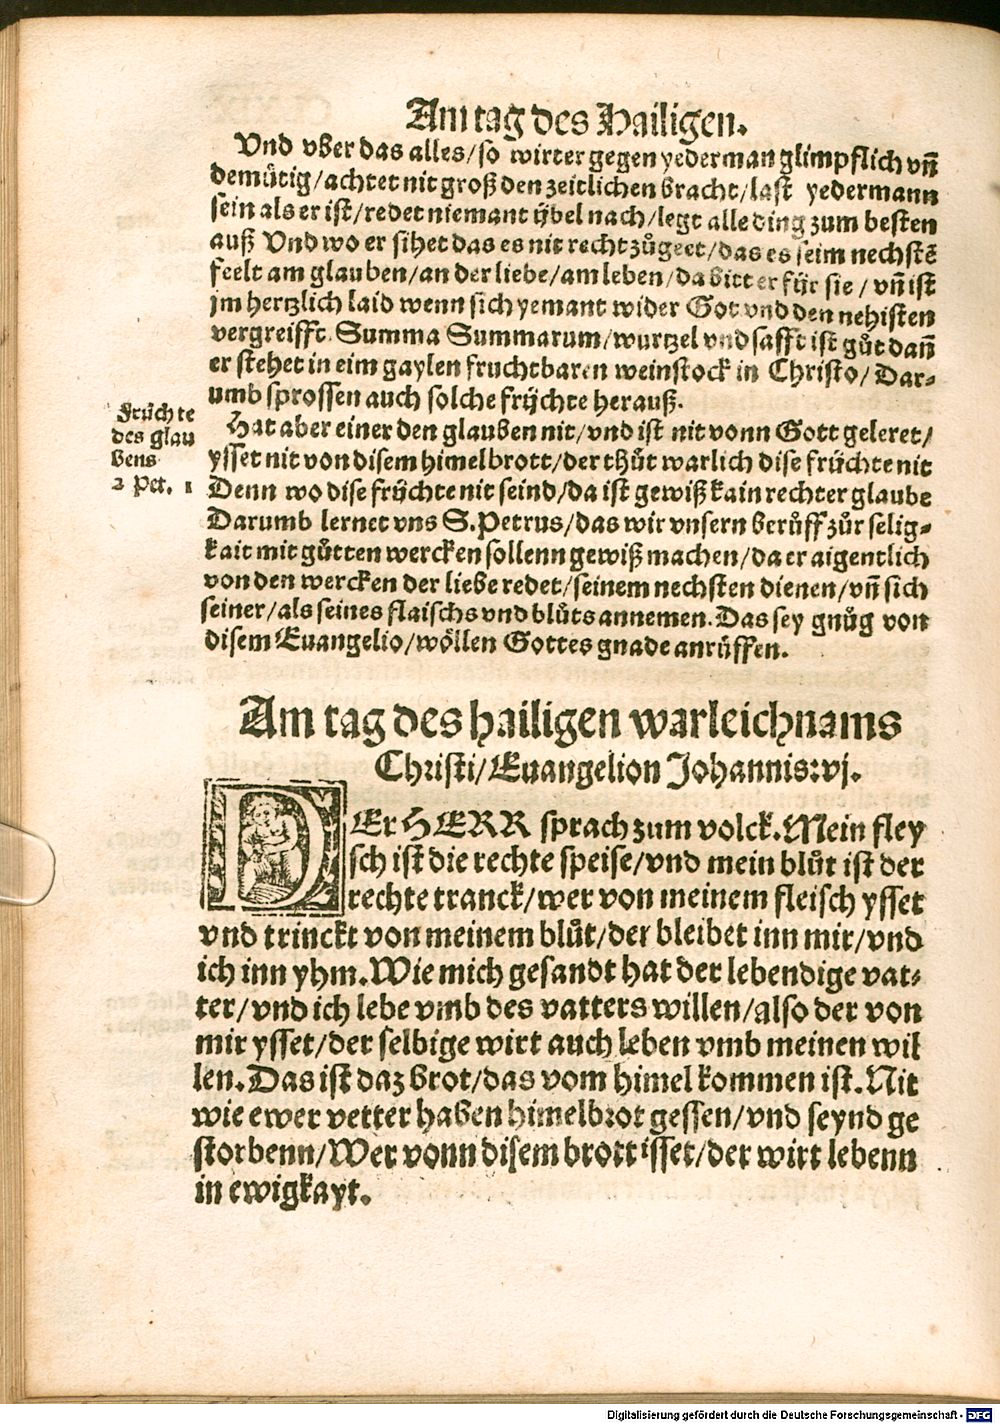 Am tag des Hailigen.
Vnd vber das alles/so wirt er gegen yederman glimpflich vñ
demůtig/achtet nit groß den zeitlichen bracht/last yedermann
sein als er ist/redet niemant ÿbel nach/legt alle ding zum besten
auß Vnd wo er sihet das es nit recht zůgeet/das es seim nechstẽ
feelt am glauben/an der liebe/am leben/da bitt er fÿr sie/vñ ist
jm hertzlich laid wenn sich yemant wider Got vnd den nehisten
vergreifft. Summa Summarum/wurtzel vnd safft ist gůt dañ
er stehet in eim gaylen fruchtbaren weinstock in Christo/Dar-
umb sprossen auch solche frÿchte herauß.
Früchte
des glau
bens
2 Pet. 1
Hat aber einer den glauben nit/vnd ist nit vonn Gott geleret/
ysset nit von disem himelbrott/der thůt warlich dise frÿchte nit
Denn wo dise frÿchte nit seind/da ist gewiß kain rechter glaube
Darumb lernet vns S. Petrus/das wir vnsern berůff zůr selig-
kait mit gůtten wercken sollenn gewiß machen/da er aigentlich
von den wercken der liebe redet/seinem nechsten dienen/vñ sich
seiner/als seines flaischs vnd blůts annemen. Das sey gnůg von
disem Euangelio/wöllen Gottes gnade anrůffen.
Am tag des hailigen warleichnams
Christi/Euangelion Johannis:vj.
DEr HERR sprach zum volck. Mein fley
sch ist die rechte speise/vnd mein blůt ist der
rechte tranck/wer von meinem fleisch ysset
vnd trinckt von meinem blůt/der bleibet inn mir/vnd
ich inn yhm. Wie mich gesandt hat der lebendige vat-
ter/vnd ich lebe vmb des vatters willen/also der von
mir ysset/der selbige wirt auch leben vmb meinen wil
len. Das ist daz brot/das vom himel kommen ist. Nit
wie ewer vetter haben himelbrot gessen/vnd seynd ge
storbenn/Wer vonn disem brott isset/der wirt lebenn
in ewigkayt.
Digitalisierung gefördert durch die Deutsche Forschungsgemeinschaft - DFG